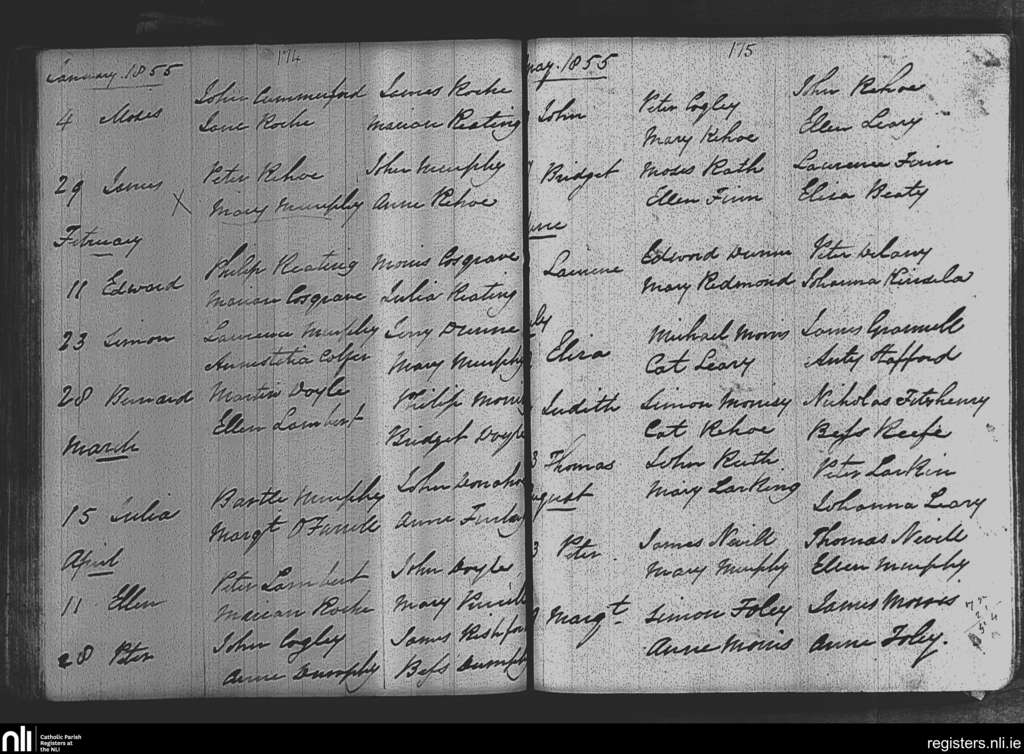 174
January. 1855
John Cummerford James Roche
4 Moses
Jane Roche Marian Keating
Peter Kehoe John Murphy
29 James
X Mary Murphy Anne Kehoe
February
Philip Keating Morris Cosgrave
11 Edward
Marian Cosgrave Julia Keating
Laurence Murphy Dunne
23 Simon
Annestatia Colfer Mary Murphy
28 Bernard Martin Doyle Philip
Ellen Lambert
Bridget Doyle
March
Bartle Murphy John
15 Julia
Margt O'Farrell Anne
April
Peter Lambert John Doyle
11 Ellen
Marian Roche Mary
John Cogley James
28 Peter
Anne Dumphy Bess
175
May. 1855
Peter Cogley John Kehoe
John
Mary Kehoe Ellen Leary
Bridget Moses Rath Laurence Finn
Ellen Finn Eliza Beaty
June
Edward Dunne Peter Delany
Laurence
Mary Redmond Johanna Kinsela
Michael Morris James
Eliza
Cat Leary Anty Stafford
Judith Simon Nicholas Fitzhenry
Cat Kehoe Bess Keefe
3 Thomas John Ruth Peter Larkin
Mary Larking
August Johanna Leary
3 Peter James Nevill Thomas Nevill
Mary Murphy Ellen Murphy
Margt. Simon Foley James Morris
Anne Morris Anne Foley.
nli Catholic Parish
Registers at
the NLI
registers.nli.ie